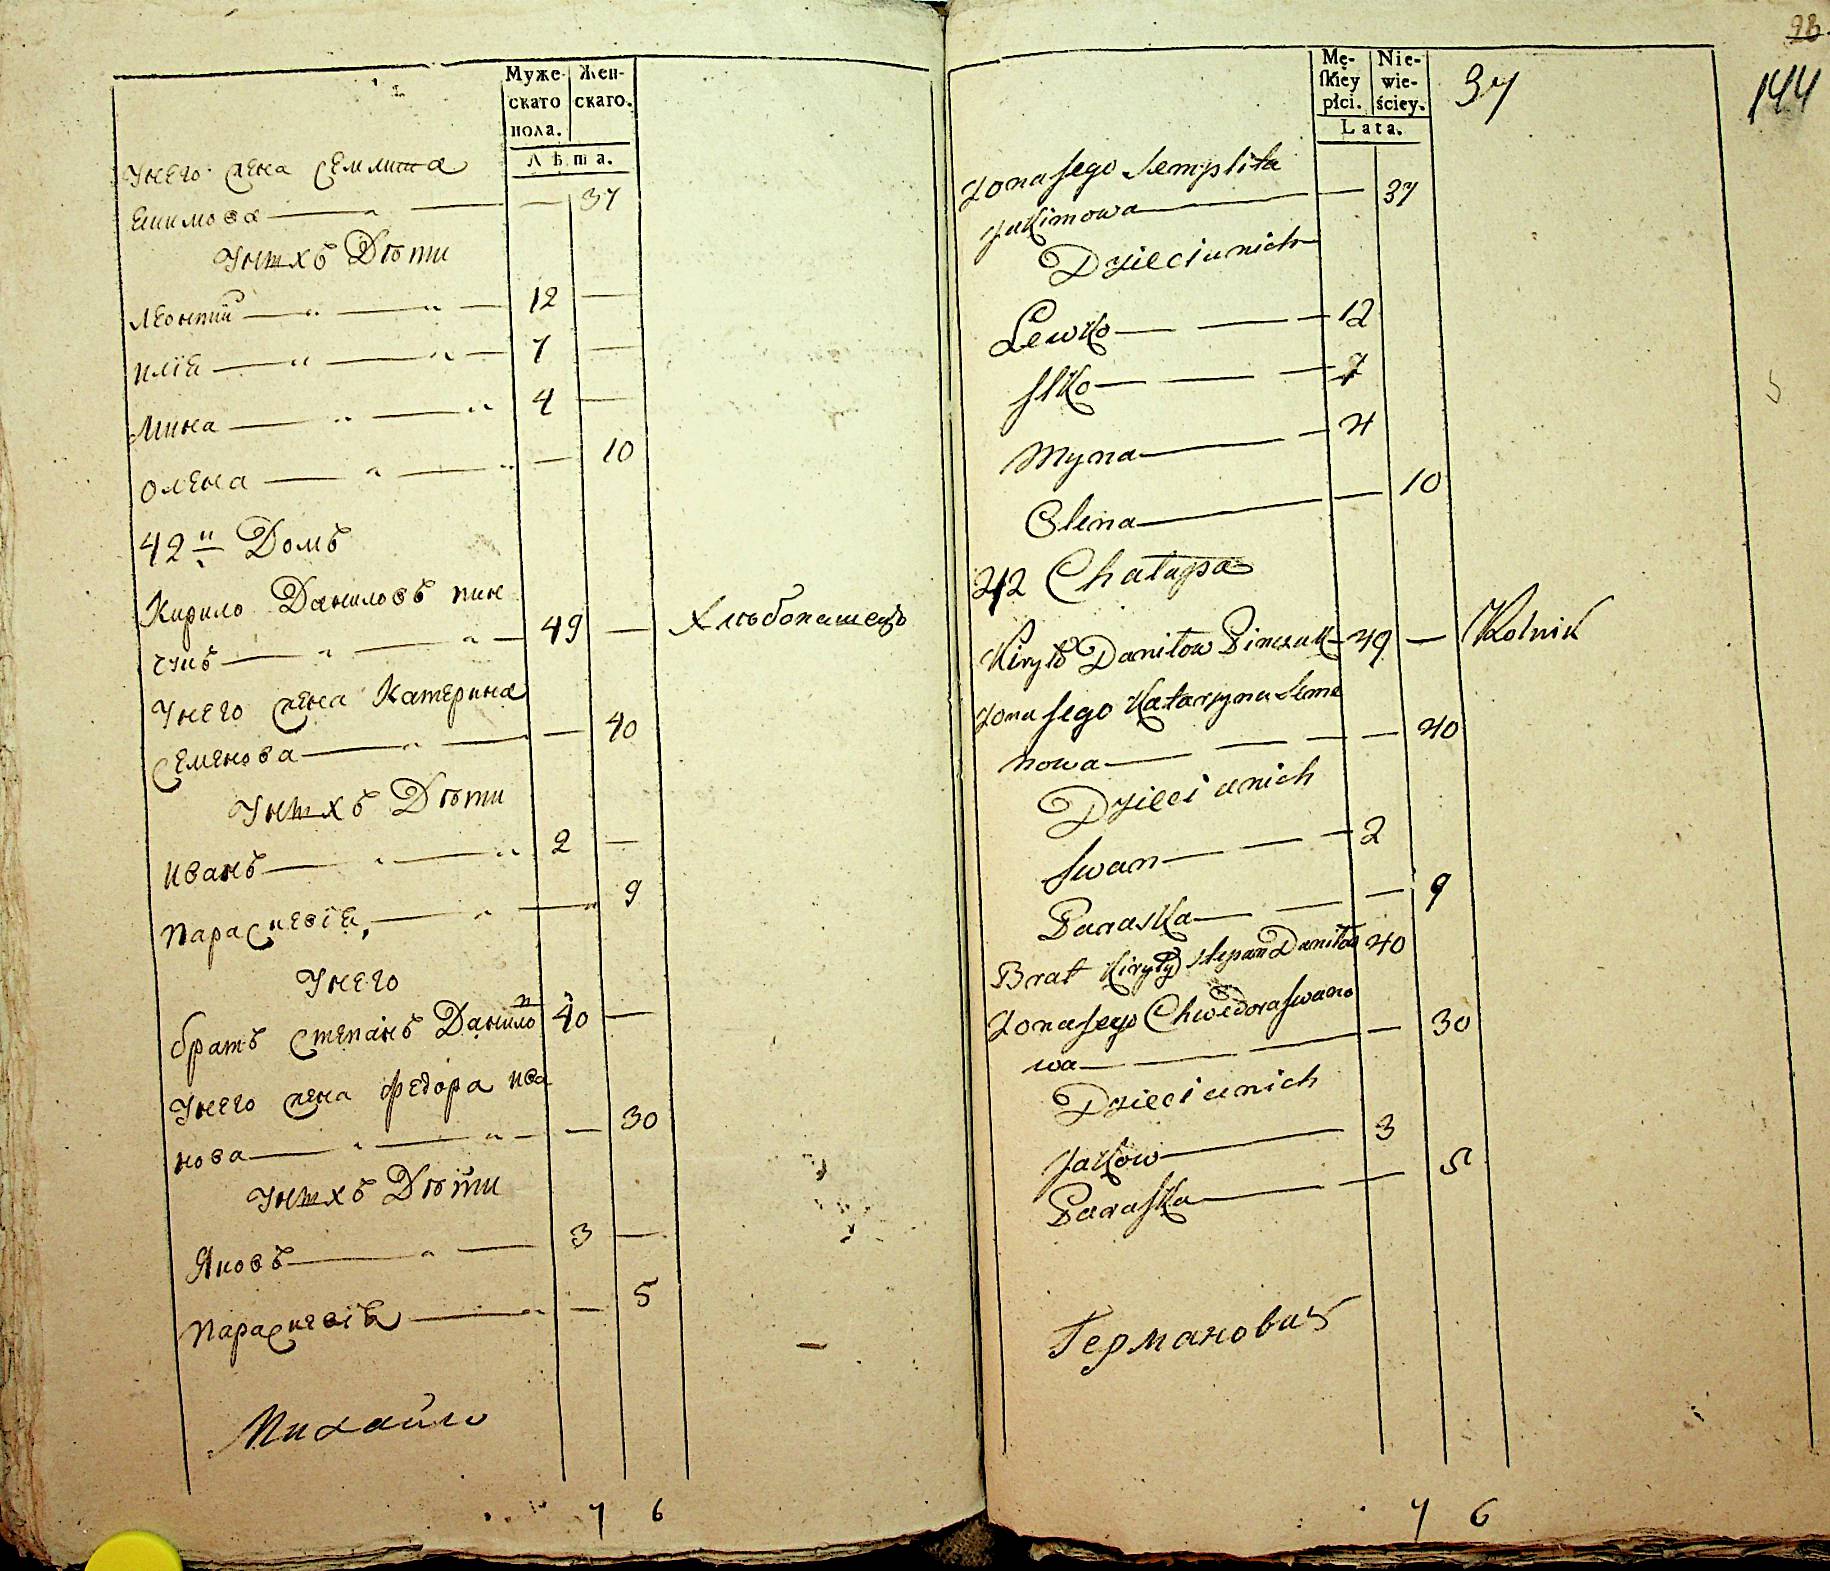 Муже-
скаго
пола.
Жен-
скаго.
Лѣта.
У него жена Семлита
Екимова 37
У нихъ Дѣти
Леонтий 12
Илїя 7
Мина 4
Олена 10
42й Домъ
Кирило Даниловъ Пин
чукъ 49 Хлѣбопашецъ
У него жена Катерина
Семенова 40
У нихъ Дѣти
Иванъ 2
Параскевїя 9
У него
братъ Степанъ Данило 40
У него жена Федора Ива
нова 30
У нихъ Дѣти
Яковъ 3
Параскевїя 5
Михайло
7 6
98
144
37
Mę-
skiey
płci.
Nie-
wie-
ściey.
Lata.
Zona Jego Semplita
Jakimowa 37
Dzieci u nich
Lewko 12
Ilko 7
Myna 4
Olena 10
42 Chałupa
Kiryło Daniłow Pinczuk 49 Rolnik
Zona Jego Katarzyna Seme
nowa 40
Dzieci u nich
Iwan 2
Paraska 9
Brat Kiryły Stepan Daniłow 40
Zona Jego Chwedora Iwano
wa 30
Dzieci u nich
Jakow 3
Paraska 5
Германовичъ
7 6